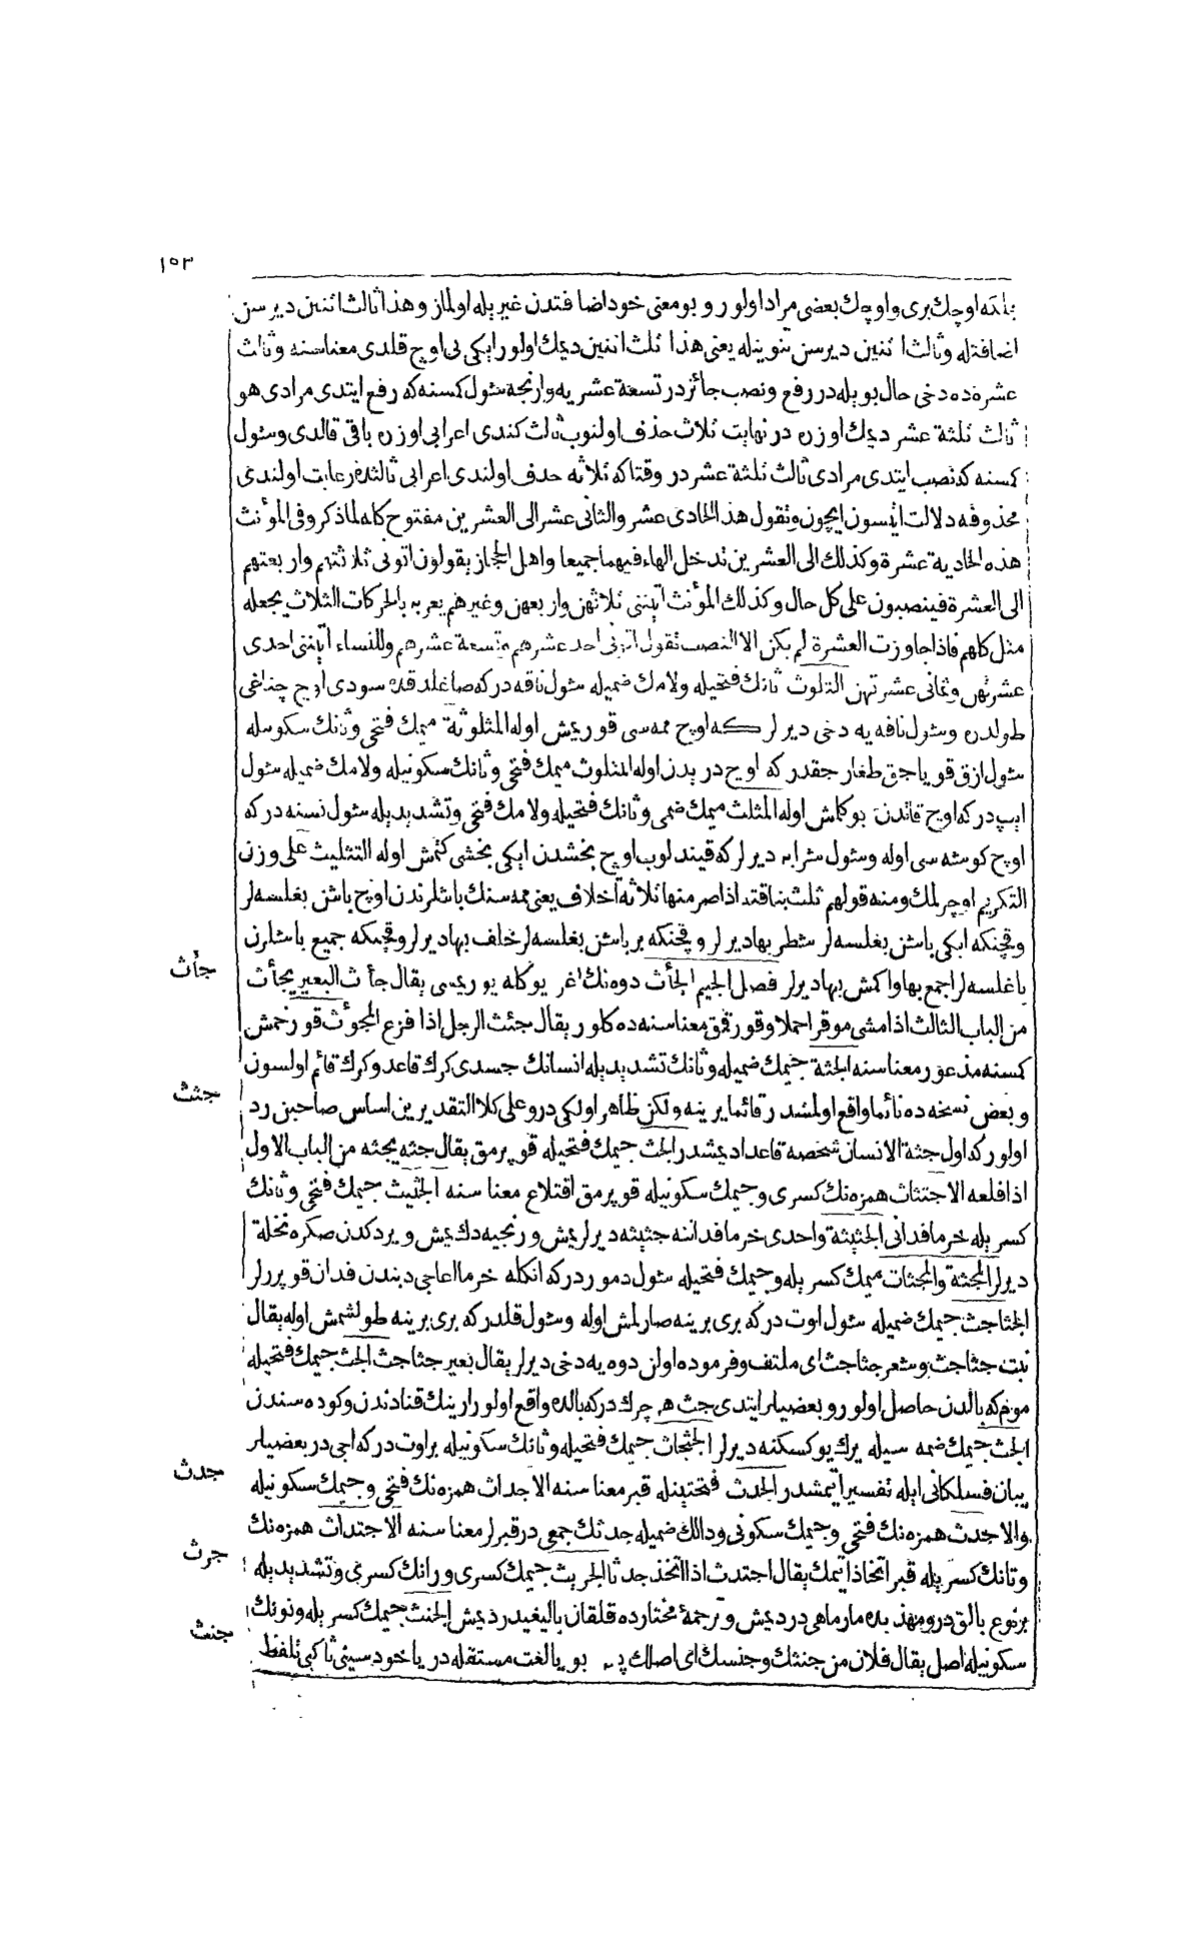 ١٥٣
بلكه اوچك برى و اوچك بعضى مراد اولور و بو معنى خود اضافتدن غيريله اولماز و هذا ثالث اثنين ديرسن
اضافتله و ثالث اثنين ديرسن تنوينله يعنى هذا ثلث اثنين ديمك اولور ايكى يى اوچ قلدى معناسنه و ثالث
عشرة ده دخى حال بويله در رفع و نصب جائزدر تسعة عشريه وارنجه شول كسنه كه رفع ايتدى مرادى هو
ثالث ثلثة عشر ديمك اوزره در نهايت ثلاث حذف اولنوب ثالث كندى اعرابى اوزره باقى قالدى و شول
كسنه كه نصب ايتدى مرادى ثالث ثلثة عشر در وقتا كه ثلاثه حذف اولندى اعرابى ثالثده رعايت اولندى
محذوفه دلالت ايتسون ايچون و تقول هذا الحادى عشر والثانى عشر الى العشرين مفتوح كله لما ذكر وفى المؤنث
هذه الحادية عشرة وكذلك الى العشرين تدخل الهاء فيهما جميعا واهل الحجاز يقولون اتونى ثلاثتهم واربعتهم
الى العشرة فينصبون على كل حال وكذلك المؤنث اتيننى ثلاثهن واربعهن وغيرهم يعربه بالحركات الثلاث يجعله
مثل كلهم فاذا جاوزت العشرة لم يكن الا النصب تقول اتونى احد عشرهم و تسعة عشرهم وللنساء اتيننى احدى
عشرتهن وثمانى عشرتهن الثلوث ثانك فتحيله ولامك ضميله شول ناقه دركه صاغلدقده سودى اوچ چناغى
طولدره و شول ناقه يه دخى ديرلر كه اوچ ممه سى قوريمش اوله المثلوثة ميمك فتحى و ثانك سكونيله
شول ازق قوياجق طغارجقدر كه اوچ دريدن اوله المثلوث ميمك فتحى و ثانك سكونيله ولامك ضميله شول
ايپ دركه اوچ قاتدن بوكلمش اوله المثلث ميمك ضمى و ثانك فتحيله ولامك فتحى و تشديديله شول نسنه دركه
اوچ كوشه سى اوله و شول شرابه ديرلر كه قيندلوب اوچ بخشدن ايكى بخشى كتمش اوله التثليث على وزن
التكريم اوچرلمك ومنه قولهم ثلث بناقته اذا صر منها ثلاثة اخلاف يعنى ممه سنك باشلرندن اوچ باشن بغلسه لر
و قچنكه ايكى باشن بغلسه لر شطر بها ديرلر و قچنكه بر باشن بغلسه لر خلف بها ديرلر و قچنكه جميع باشلرن
باغلسه لر اجمع بها و اكمش بها ديرلر فصل الجيم الجأث دوه نك اغر يوكله يوريمسى يقال جأث البعير يجأث
من الباب الثالث اذا مشى موقرا حملا و قورقمق معناسنه ده كلور يقال جئث الرجل اذا فزع المجوئث قورخمش
كسنه مذعور معناسنه الجثة جيمك ضميله و ثانك تشديديله انسانك جسدى كرك قاعد و كرك قائم اولسون
و بعض نسخه ده نائما واقع اولمشدر قائما يرينه ولكن ظاهر اولكى درو على كلا التقديرين اساس صاحبن رد
اولور كه اول جثة الانسان شخصه قاعدا ديمشدر الجث جيمك فتحيله قوپرمق يقال جثه يجثه من الباب الاول
اذا قلعه الاجتثاث همزه نك كسرى و جيمك سكونيله قوپرمق اقتلاع معناسنه الجثيث جيمك فتحى و ثانك
كسريله خرما فدانى الجثيثة واحدى خرما فداننه جثيثه ديرلر يمش ورنجيه دك يمش ويردكدن صكره نخلة
ديرلر المجثة والمجثاث ميمك كسريله و جيمك فتحيله شول دموردركه انكله خرما اغاجى ديبندن فدان قوپررلر
الجثاجث جيمك ضميله شول اوت دركه برى برينه صارلمش اوله و شول قلدركه برى برينه طولشمش اوله يقال
نبت جثاجث و شعر جثاجث اى ملتف و فرموده اولن دوه يه دخى ديرلر يقال بعير جثاجث الجث جيمك فتحيله
موم كه بالدن حاصل اولور و بعضيلر ايتدى جث هر چرك دركه بالده واقع اولور ارينك قنادندن و كوده سندن
الجث جيمك ضمه سيله يرك يوكسكنه ديرلر الجثجاث جيمك فتحيله و ثانك سكونيله بر اوت دركه اجى در بعضيلر
يبان فسلكانى ايله تفسير ايتمشدر الجدث فتحتينله قبر معناسنه الاجداث همزه نك فتحى و جيمك سكونيله
والاجدث همزه نك فتحى و جيمك سكونى و دالك ضميله جدثك جمعى در قبرلر معناسنه الاجتداث همزه نك
و تانك كسريله قبر اتخاذ ايتمك يقال اجتدث اذا اتخذ جدثا الجريث جيمك كسرى ورانك كسرى و تشديديله
بر نوع بالق درو مهذبده مار ماهى در ديمش و ترجمۀ مختارده قلقان باليغيدر ديمش الجنث جيمك كسريله و نونك
سكونيله اصل يقال فلان من جنثك وجنسك اى اصلك بو يا لغت مستقله در يا خود سينى ثا كبى تلفظ
جأث
جثث
جدث
جرث
جنث